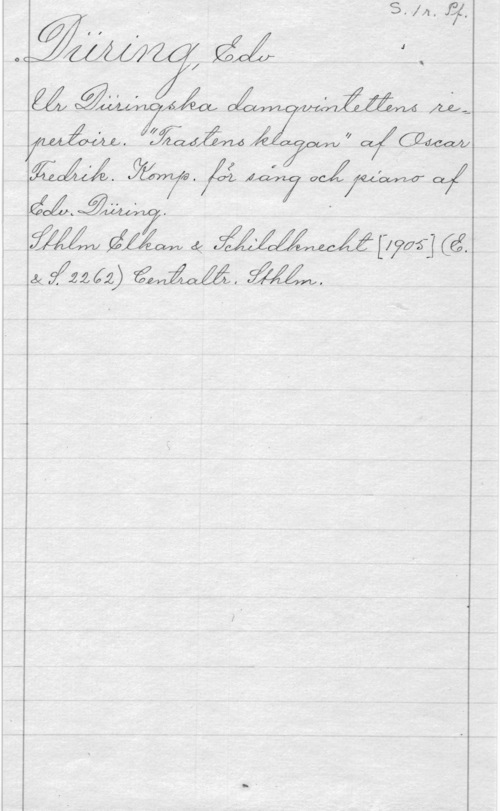 S. 1 r. Pf.
Düring, Edv
Ur Düringska damqvintettens re-
pertoire. "Trastens klagan" af Oscar
Fredrik. Komp. för sång och piano af
Edv. Düring.
Sthlm Elkan & Schildknecht [1905] (E.
& S. 2262) Centraltr. Sthlm.